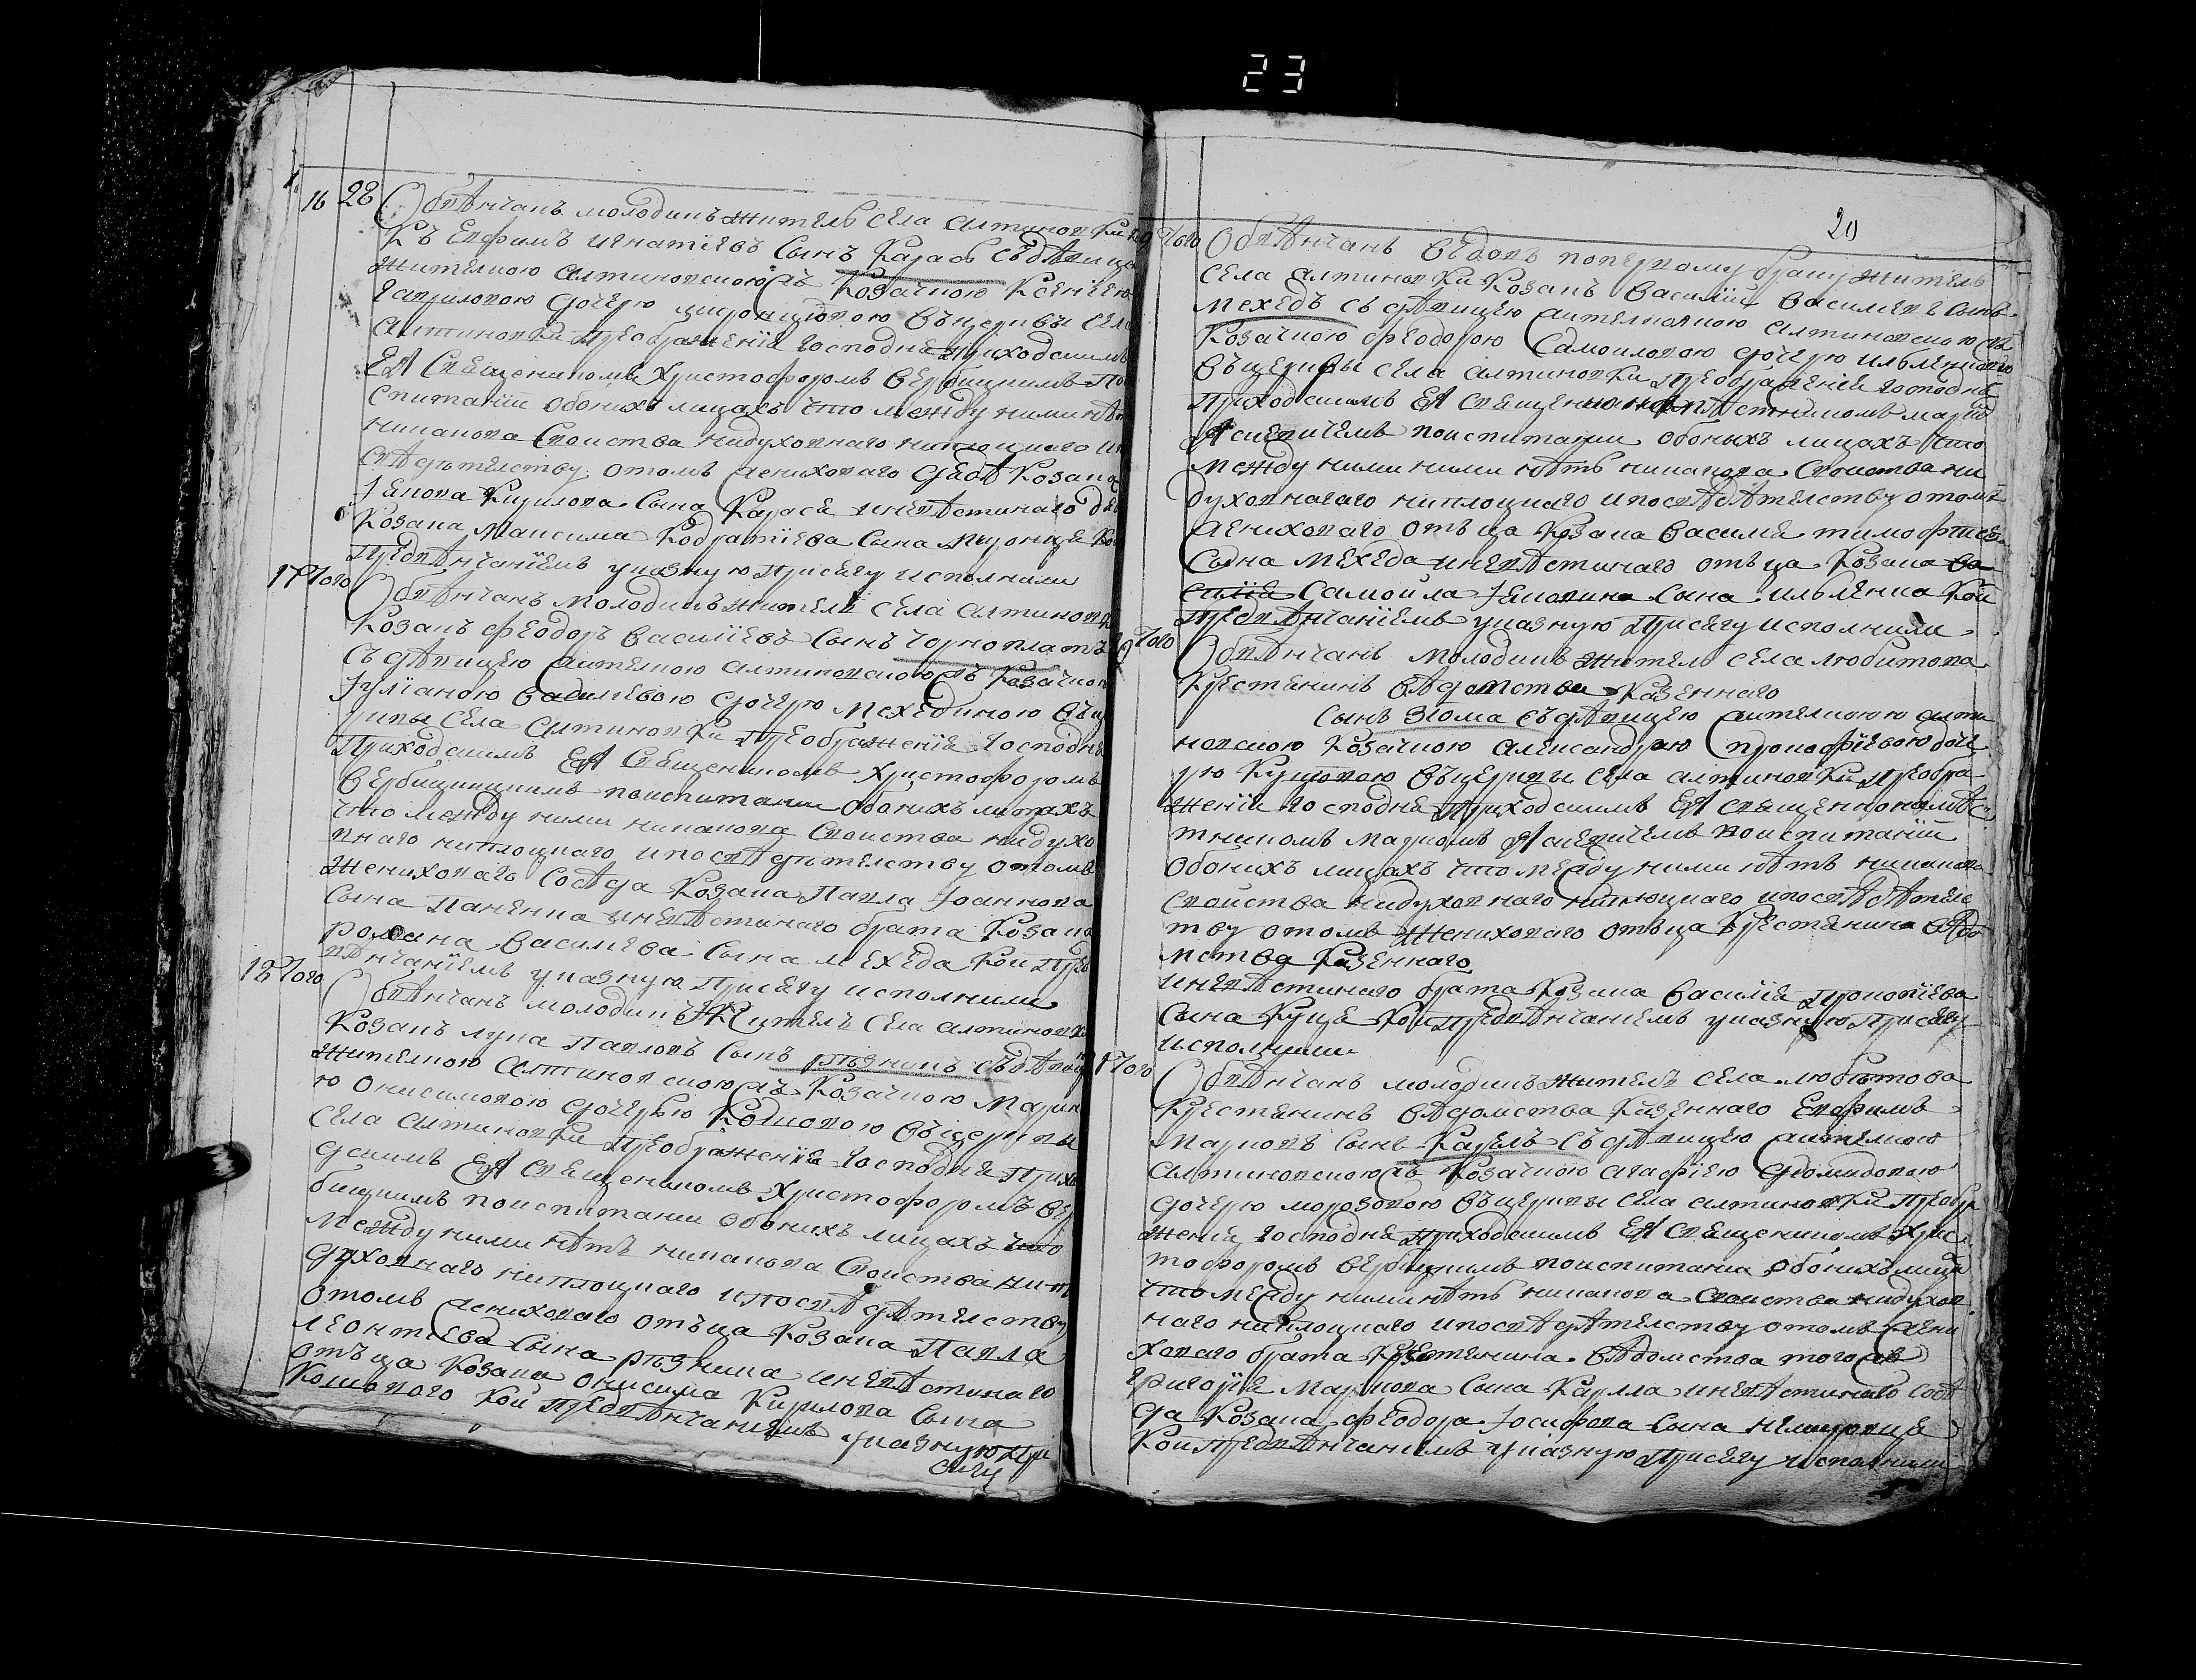 23
20
16 28 Обвѣнчанъ молодикъ житель села Алтиновки
къ Евфимъ Игнатіевъ сынъ Карась съ дѣвице
жителкою алтиновскою съ козачкою Ксеніею
Гавриловою дочерю въ церквы села
Алтиновки Преображенія Господня приходскимъ
ея священникомъ Христофоромъ Вербицкимъ по
испитаніи обоихъ лицахъ что между ними нѣтъ
никакова своиства нидуховнаго ниплоцкаго и
свѣдѣтелству отомъ жениховаго дѣда козака
Іакова Кирилова сына Карася иневѣстинаго
козака Максима Кодратіева сына
предвѣнчаніемъ указную присягу исполнили
17 того Обвѣнчанъ молодикъ житель села Алтиновки
козакъ Феодоръ Василіевъ сынъ Чорноплатъ
съ дѣвицею жителкою алтиновскою съ козачкою
Іуліаною Василиевою дочерю Мехединою въ це
рквы села Алтиновки Преображенія Господня
приходскимъ ея священникомъ Христофоромъ
Вербицкимъ поиспитании обоихъ лицахъ
что между ними никакова своиства нидухо
внаго ниплоцкаго ипосвѣдѣтелству отомъ
жениховаго сосѣда козака Павла Іоаннова
сына Паненка иневѣстинаго брата козака
Романа Василиева сына Мехеда кои пред
вѣнчаніемъ указную присягу исполнили
18 того Обвѣнчанъ молодикъ житель села Алтиновки
козакъ Лука Павловъ сынъ Рѣзникъ съ дѣвице
жителкою алтиновскою съ козачкою Мари
ю Онисимовою дочерью въ церквы
села Алтиновки Преображенія Господня прихо
дскимъ ея священникомъ Христофоромъ Вер
бицкимъ поиспитании обоихъ лицахъ что
между ними нѣтъ никакова своиства ни
духовнаго ниплоцкаго ипосвѣдѣтелству
отомъ жениховаго отъца козака Павла
Леонтиева сына Рѣзника иневѣстинаго
отъца козака Онисима Кирилова сына
кои предвѣнчаниемъ указную при
сягу
того Обвѣнчанъ въдовъ поперъвому браку житель
села Алтиновки козакъ Василій Василиевъ сынъ
Мехедъ съ дѣвицею жителкою алтиновскою съ
козачкою Феодорою Самоиловою дочерю Ильенковою
въ церквы села Алтиновки Преображенія Господня
приходскимъ ея священнонамѣстникомъ Марко
поиспитании обоихъ лицахъ что
между ними ними нѣтъ никакова своиства ни
духовнагаго ниплоцкаго ипосвѣдѣтелству отомъ
жениховаго отъца козака Василія Тимофѣева
сына Мехеда иневѣстинаго отъца козака Ва
силія Самойла Іаковина сына Ильенка кои
предвѣнчаніемъ указную присягу исполнили
20 того Обвѣнчанъ молодикъ житель села Любитова
крестянинъ вѣдомства казеннаго
сынъ Зюма съ дѣвицею жителкою алти
новскою козачкою Александрою Прокофіевою доче
рю въ церквы села Алтиновки Преобра
женія Господня приходскимъ ея священнонамѣс
тникомъ Маркомъ поиспитаніи
обоихъ лицахъ что между ними нѣтъ никакова
своиства нидуховнаго ниплоцкаго ипосвѣдѣтелс
тву отомъ жениховаго отъца крестянина вѣдо
мства казеннаго
иневѣстинаго брата козака Василія Прокопіева
сына Куце кои предвѣнчаніемъ указную присягу
исполнили
того Обвѣнчанъ молодикъ житель села Любитова
крестянинъ вѣдомства казеннаго Евфимъ
Марковъ сынъ Карелъ съ дѣвицею жителкою
алтиновскою съ козачкою Агафіею Домидовою
дочерю Морозовою въ церквы села Алтиновки Преобра
женія Господня приходскимъ ея священникомъ Хрис
тофоромъ Вербицкимъ поиспитаніи обоихъ лицахъ
что между ними нѣтъ никакова своиства нидухов
наго ниплоцкаго ипосвѣдѣтелству отомъ жени
ховаго брата крестянина вѣдомства того жъ
Григорія Маркова сына Карла иневѣстинаго сосѣ
да козака Феодора Іосифова сына
кои предвѣнчаниемъ указную присягу исполнили